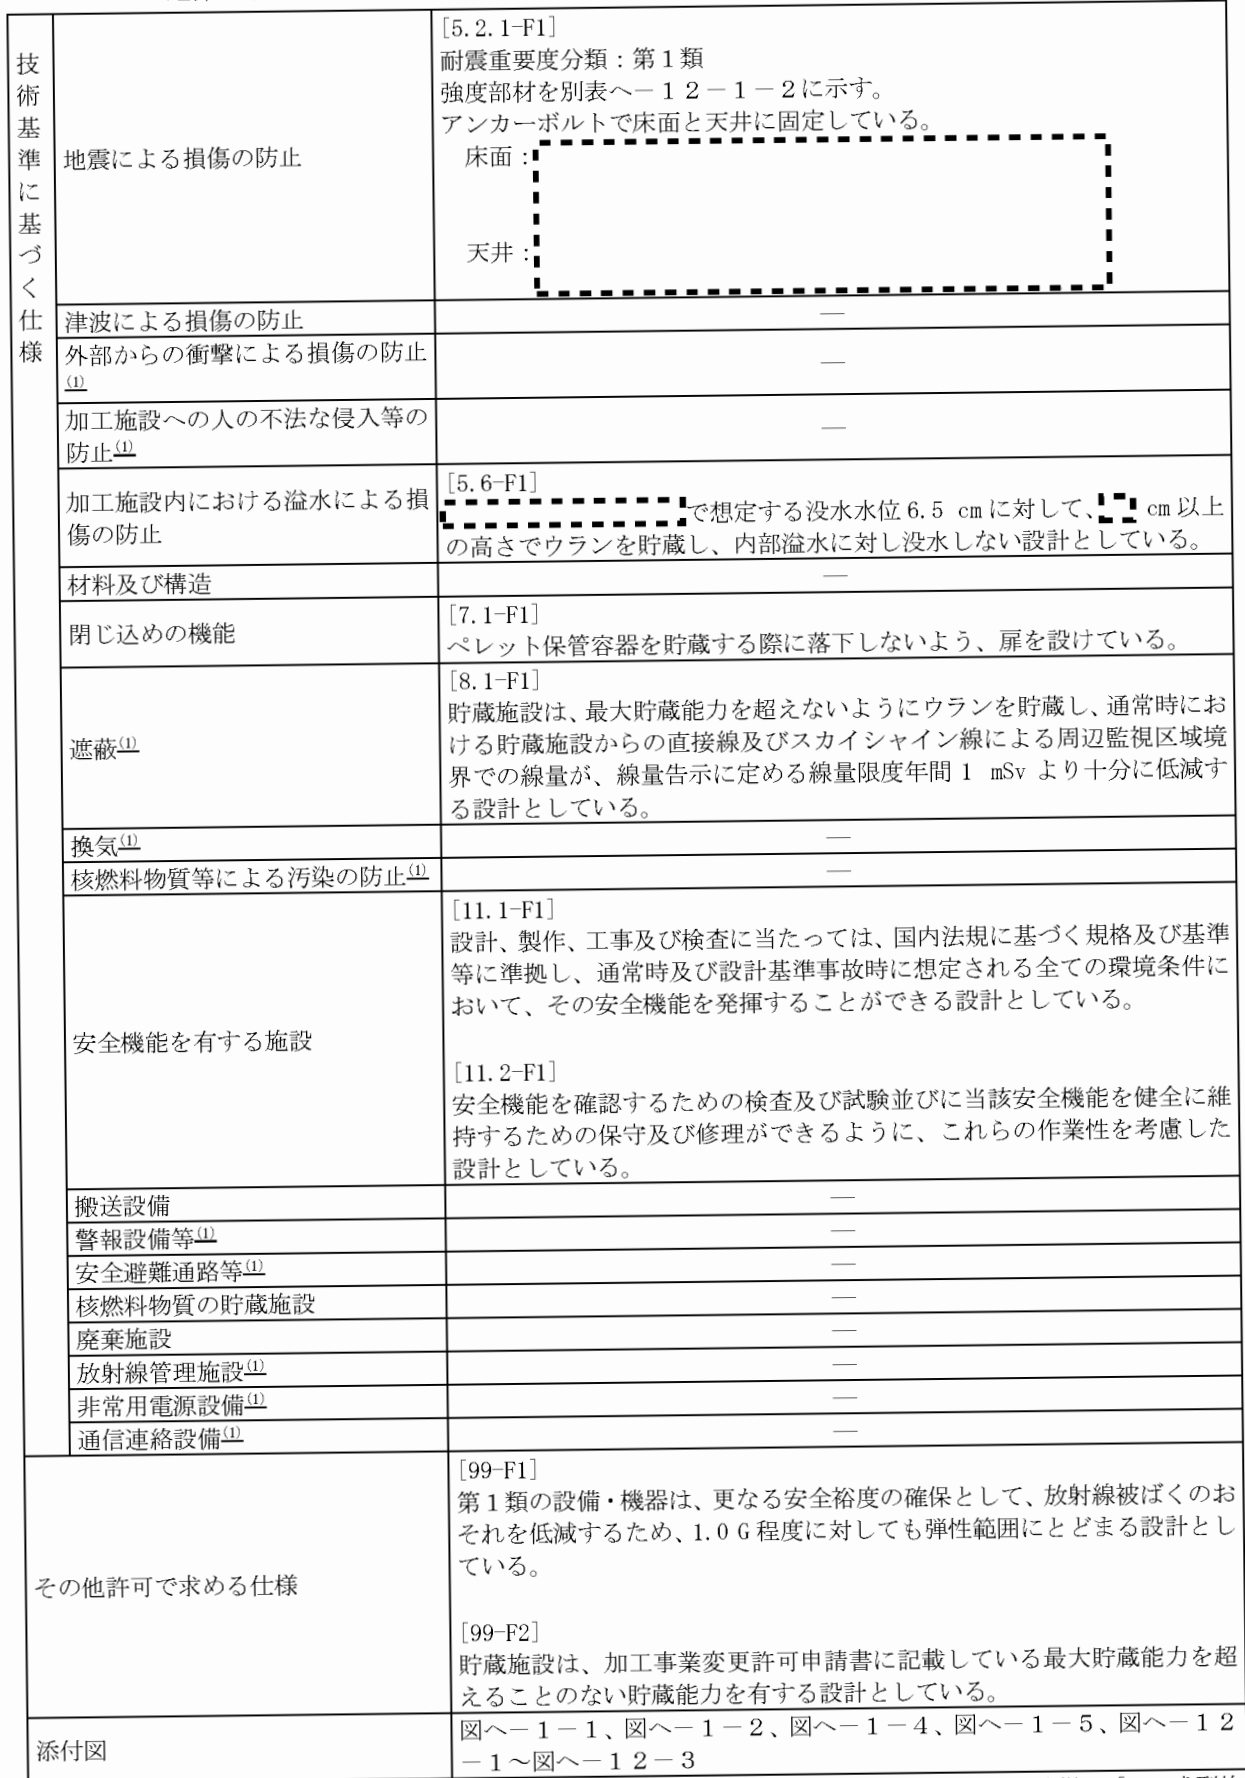 技術基準に基づく仕様
地震による損傷の防止
[5.2.1-F1]
耐震重要度分類：第１類
強度部材を別表へ－１２－１－２に示す。
アンカーボルトで床面と天井に固定している。
床面：
天井：
津波による損傷の防止
―
外部からの衝撃による損傷の防止
(1)
―
加工施設への人の不法な侵入等の
防止(1)
―
加工施設内における溢水による損
傷の防止
[5.6-F1]
で想定する没水水位 6.5 cm に対して、 cm 以上
の高さでウランを貯蔵し、内部溢水に対し没水しない設計としている。
材料及び構造
―
閉じ込めの機能
[7.1-F1]
ペレット保管容器を貯蔵する際に落下しないよう、扉を設けている。
遮蔽(1)
[8.1-F1]
貯蔵施設は、最大貯蔵能力を超えないようにウランを貯蔵し、通常時にお
ける貯蔵施設からの直接線及びスカイシャイン線による周辺監視区域境
界での線量が、線量告示に定める線量限度年間 1 mSv より十分に低減す
る設計としている。
換気(1)
―
核燃料物質等による汚染の防止(1)
―
安全機能を有する施設
[11.1-F1]
設計、製作、工事及び検査に当たっては、国内法規に基づく規格及び基準
等に準拠し、通常時及び設計基準事故時に想定される全ての環境条件に
おいて、その安全機能を発揮することができる設計としている。
[11.2-F1]
安全機能を確認するための検査及び試験並びに当該安全機能を健全に維
持するための保守及び修理ができるように、これらの作業性を考慮した
設計としている。
搬送設備
―
警報設備等(1)
―
安全避難通路等(1)
―
核燃料物質の貯蔵施設
―
廃棄施設
―
放射線管理施設(1)
―
非常用電源設備(1)
―
通信連絡設備(1)
―
その他許可で求める仕様
[99-F1]
第１類の設備・機器は、更なる安全裕度の確保として、放射線被ばくのお
それを低減するため、1.0 G 程度に対しても弾性範囲にとどまる設計とし
ている。
[99-F2]
貯蔵施設は、加工事業変更許可申請書に記載している最大貯蔵能力を超
えることのない貯蔵能力を有する設計としている。
添付図
図へ－１－１、図へ－１－２、図へ－１－４、図へ－１－５、図へ－１２
－１～図へ－１２－３